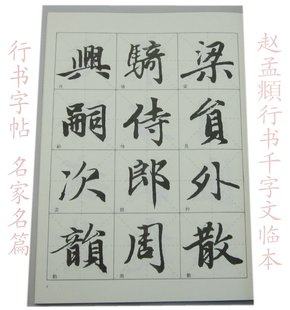 赵孟頫行书千字文临本
梁员外散
骑侍郎周
興嗣次韻
行书字帖 名家名篇